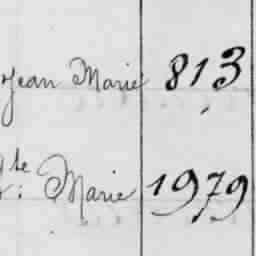 Jean Marie 813
Marie 1979